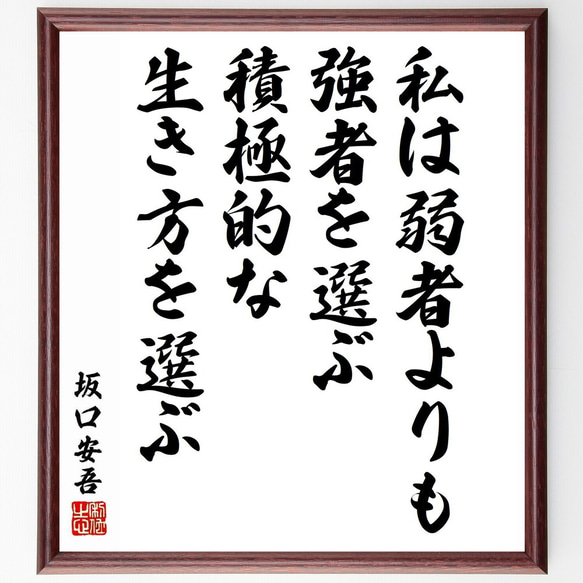 私は弱者よりも
強者を選ぶ
積極的な
生き方を選ぶ
坂口安吾